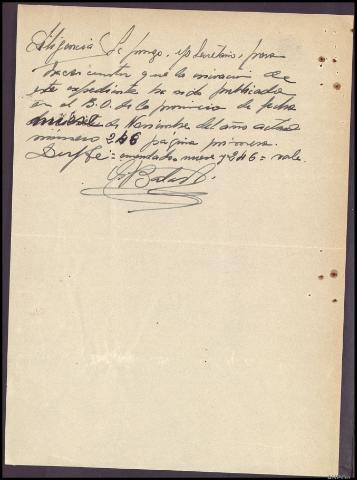 Diligencia. La pongo, yo Secretario, para
hacer constar que la incoación de
este expediente ha sido publicada
en el B.O. de la provincia de fecha
nueve de Noviembre del año actual
número 246 página primera.
Doy fe = enmendados nueve y 246 = vale.